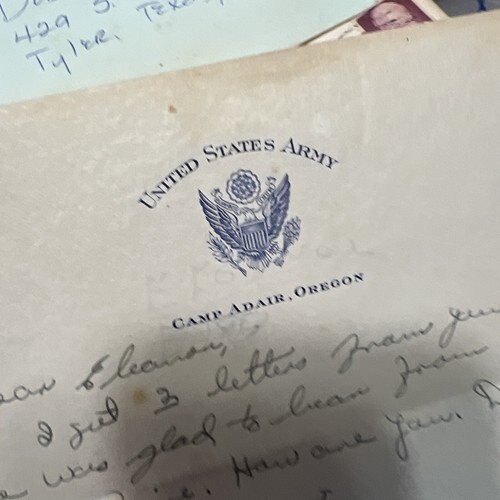 429 S.
Tyler, Texas
UNITED STATES ARMY
CAMP ADAIR, OREGON
Eleanor,
I got 3 letters from you
was glad to hear from
. How are you.